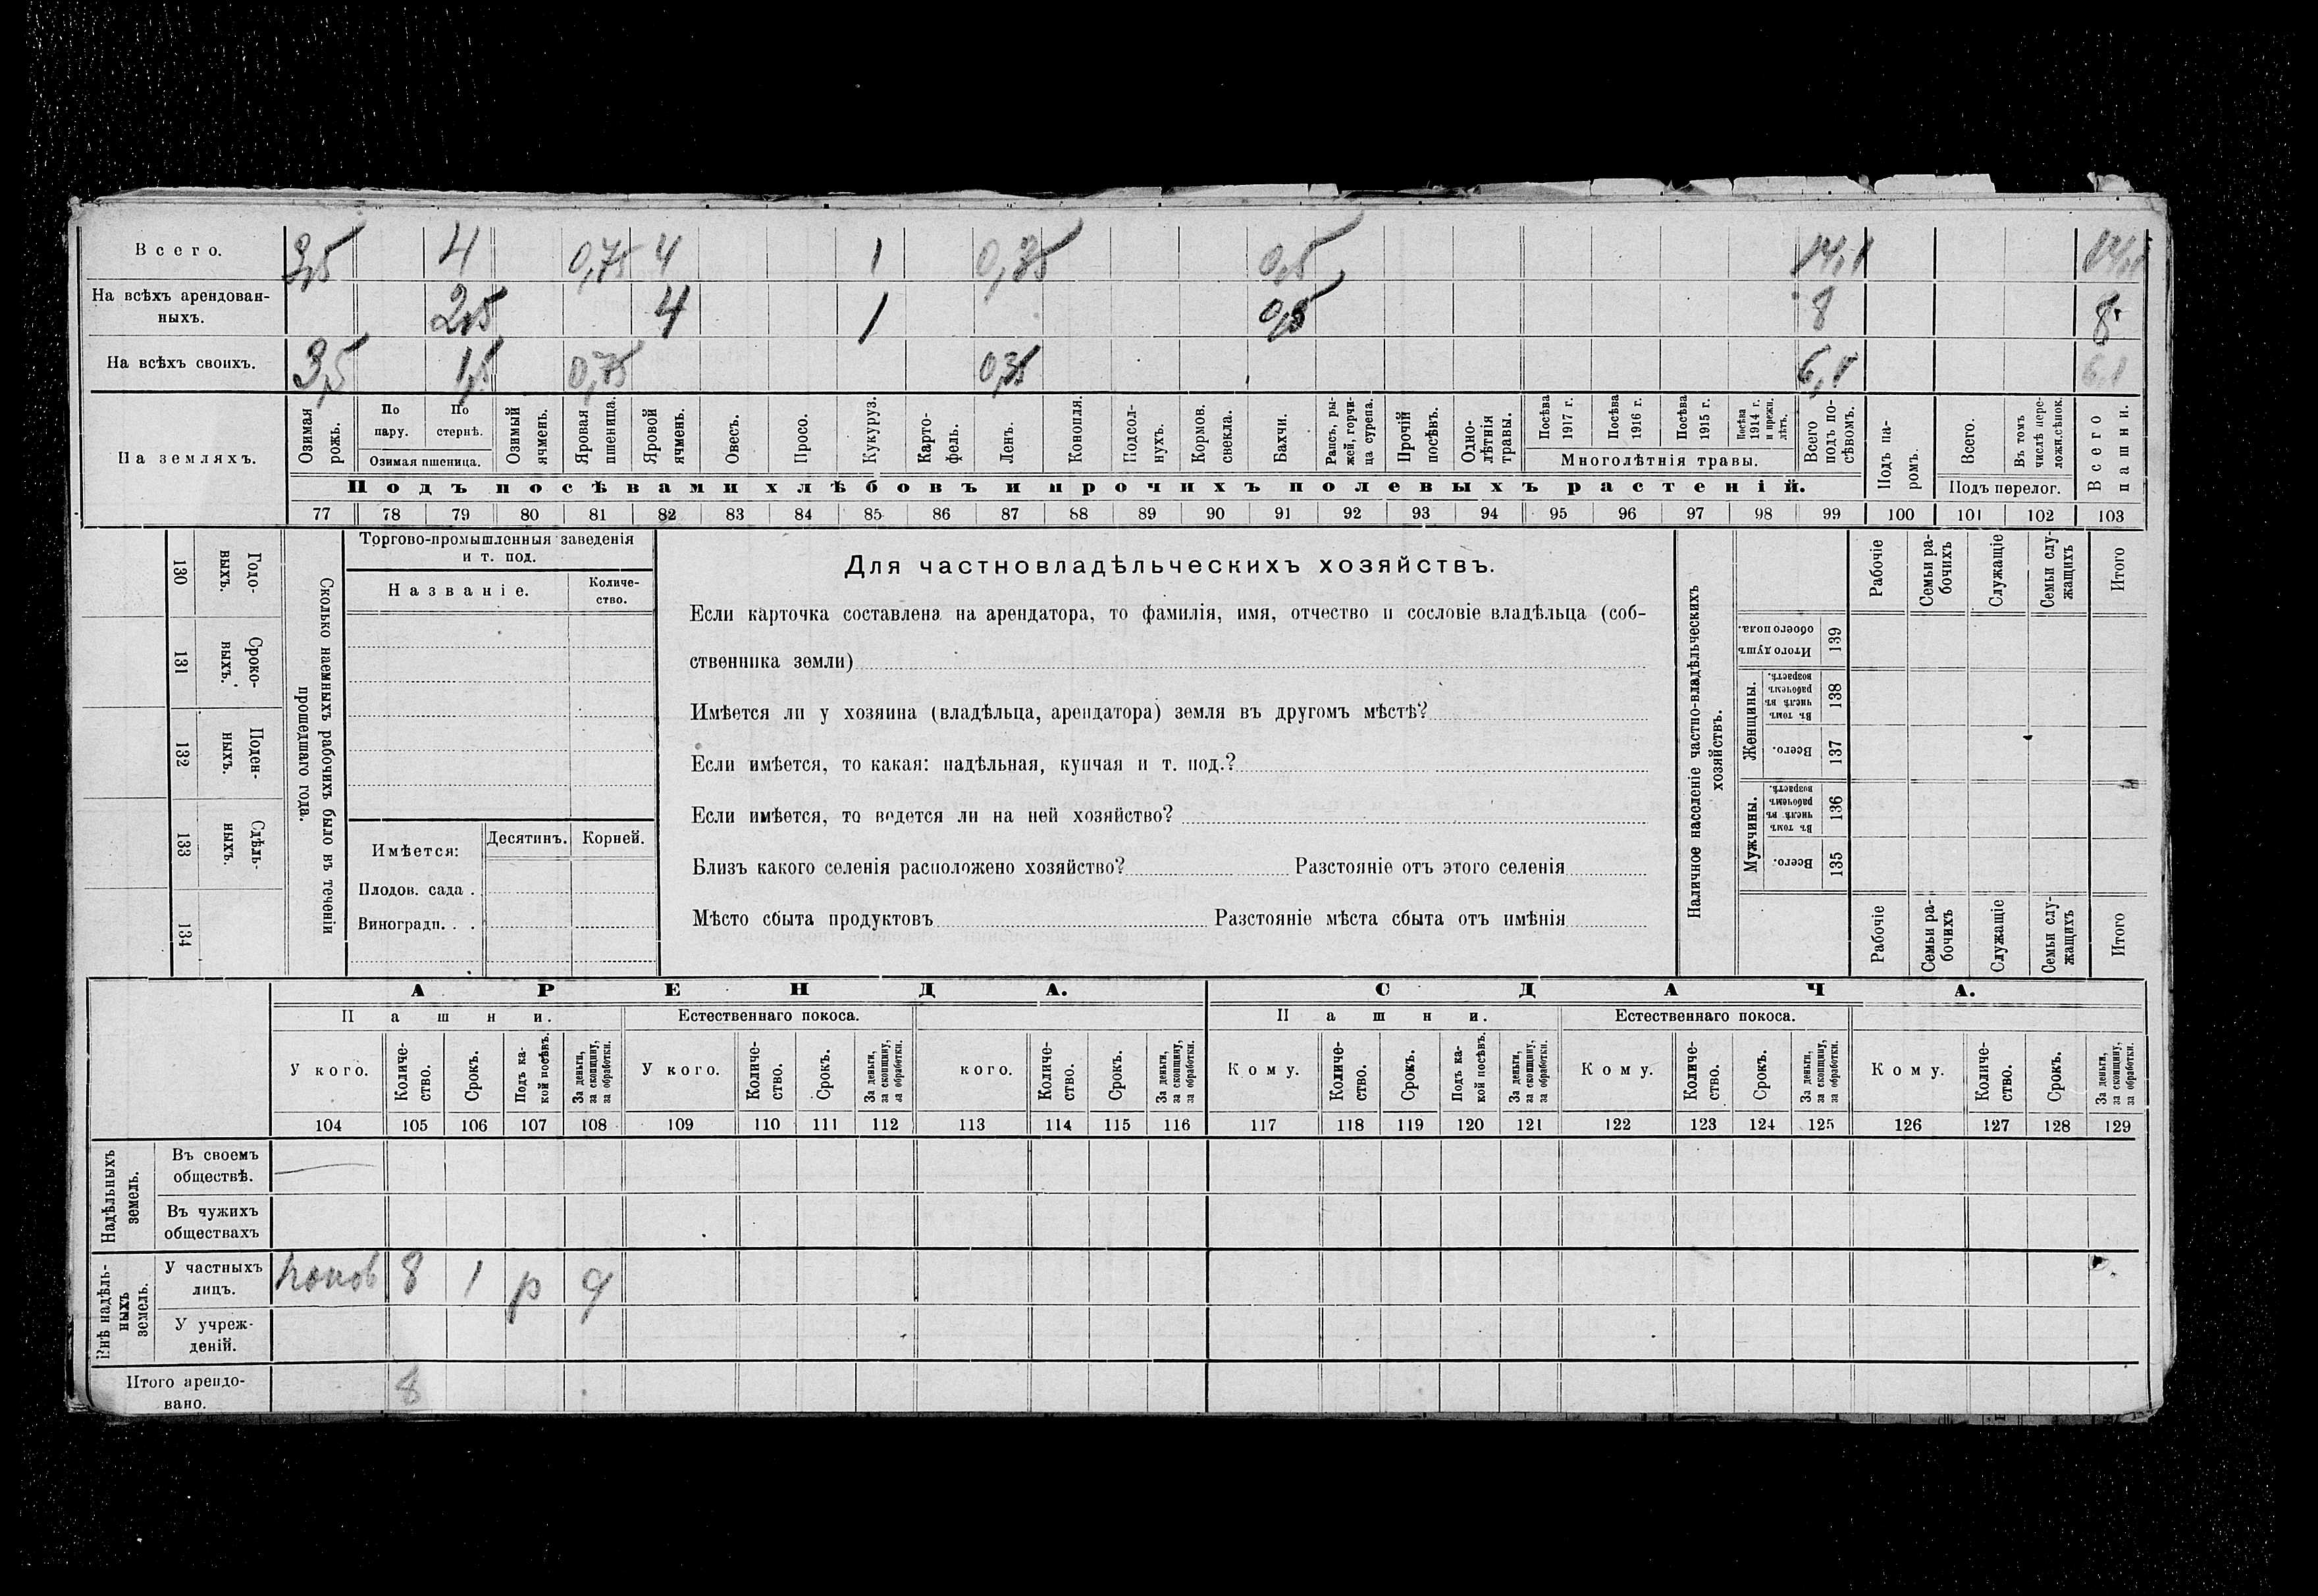 Всего. 3,5 4 0,75 4 1 0,35 0,5 14,1 14,1
На всѣхъ арендован-
ныхъ. 2,5 4 1 0,5 8 8
На всѣхъ своихъ. 3,5 1,5 0,75 0,35 6,1 6,1
На земляхъ.
Озимая рожь.
По пару.
По стернѣ.
Озимая пшеница.
Озимый ячмень.
Яровая пшеница.
Яровой ячмень.
Овесъ.
Просо.
Кукуруз.
Карто-
фель.
Ленъ.
Конопля.
Подсол-
нухъ.
Кормов. свекла.
Бахчи.
Рапсъ, ры-
жей, горчи-
ца сурепа.
Прочій посѣвъ.
Одно-
лѣтнія травы.
Посѣва 1917 г.
Посѣва 1916 г.
Посѣва 1915 г.
Посѣва 1914 г. и прежн. лѣтъ.
Многолѣтнія травы.
Всего подъ по-
сѣвомъ.
Подъ па-
ромъ.
Всего.
Въ томъ числѣ пере-
ложн.сѣнок.
Подъ перелог.
Всего пашни.
Подъ посѣвами хлѣбовъ и прочихъ полевыхъ растеній.
77 78 79 80 81 82 83 84 85 86 87 88 89 90 91 92 93 94 95 96 97 98 99 100 101 102 103
130 Годо-
выхъ.
131 Сроко-
ныхъ.
132 Поден-
ныхъ.
133 Сдѣль-
ныхъ.
134
Сколько наемныхъ рабочихъ было въ теченіи
прошедшаго года.
Торгово-промышленныя заведенія
и т. под.
Названіе. Количе-
ство.
Имѣется: Десятинъ. Корней.
Плодов. сада .
Виноградн. . .
Для частновладѣльческихъ хозяйствъ.
Если карточка составлена на арендатора, то фамилія, имя, отчество и сословіе владѣльца (соб-
ственника земли)
Имѣется ли у хозяина (владѣльца, арендатора) земля въ другомъ мѣстѣ?
Если имѣется, то какая: надѣльная, купчая и т. под.?
Если имѣется, то ведется ли на ней хозяйство?
Близъ какого селенія расположено хозяйство? Разстояніе отъ этого селенія
Мѣсто сбыта продуктовъ Разстояніе мѣста сбыта отъ имѣнія
Наличное населеніе частно-владѣльческихъ
хозяйствъ.
Рабочіе
Семьи ра-
бочихъ
Служащіе
Семьи слу-
жащихъ
Итого
Итого душъ обоего пола. 139
Женщины.
Въ томъ числѣ въ рабочемъ возрастѣ. 138
Всего. 137
Мужчины.
Въ томъ числѣ въ рабочемъ возрастѣ. 136
Всего. 135
Рабочіе
Семьи ра-
бочихъ
Служащіе
Семьи слу-
жащихъ
Итого
АРЕНДА. СДАЧА.
Пашни. Естественнаго покоса. Пашни. Естественнаго покоса.
У кого.
Количе-
ство.
Срокъ.
Подъ ка-
кой посѣвъ.
За деньги,
за скопщину,
за обработки.
У кого.
Количе-
ство.
Срокъ.
За деньги,
за скопщину,
за обработки.
кого.
Количе-
ство.
Срокъ.
За деньги,
за скопщину,
за обработки.
Кому.
Количе-
ство.
Срокъ.
Подъ ка-
кой посѣвъ.
За деньги,
за скопщину,
за обработки.
Кому.
Количе-
ство.
Срокъ.
За деньги,
за скопщину,
за обработки.
Кому.
Количе-
ство.
Срокъ.
За деньги,
за скопщину,
за обработки.
104 105 106 107 108 109 110 111 112 113 114 115 116 117 118 119 120 121 122 123 124 125 126 127 128 129
Надѣльныхъ
земель.
Въ своемъ
обществѣ.
Въ чужихъ
обществахъ
Внѣ надѣль-
ныхъ
земель.
У частныхъ
лицъ. попов 8 1 р д
У учреж-
деній.
Итого арендо-
вано. 8